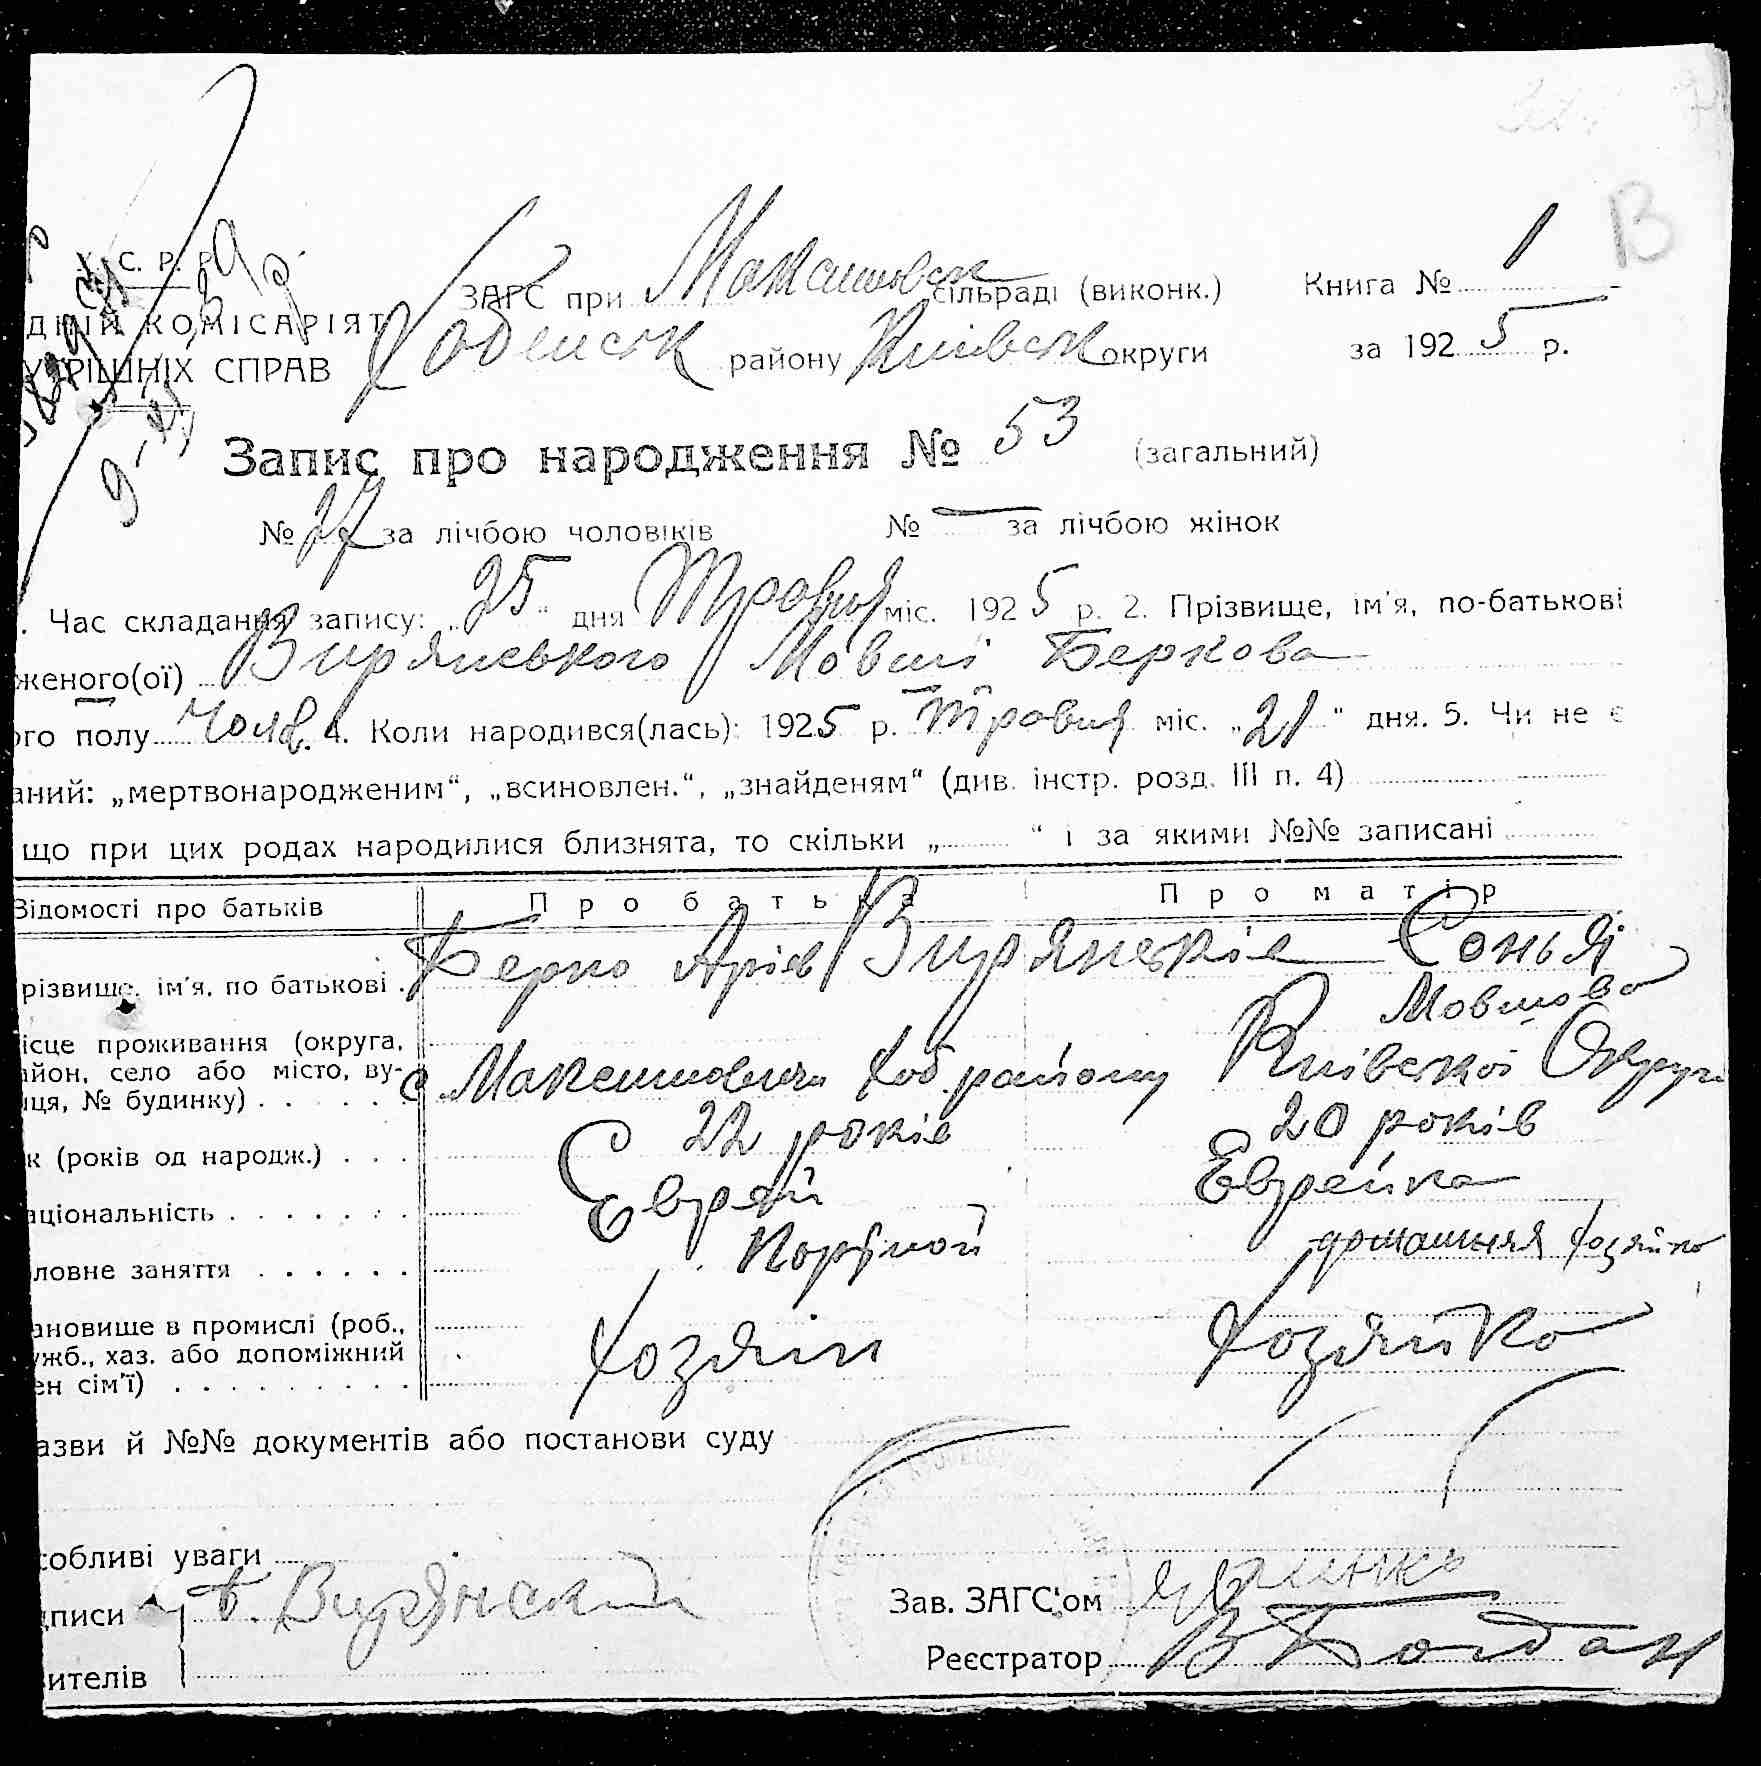 У. С. Р. Р.
ДНІЙ КОМІСАРІЯТ
УТРІШНІХ СПРАВ
В
ЗАГС при Максимовск сільраді (виконк.) Книга № 1
Хабенськ району Київськ округи за 1925 р.
Запис про народження № 53 (загальний)
№ 27 за лічбою чоловіків № — за лічбою жінок
. Час складання запису: „25“ дня Травня міс. 1925 р. 2. Прізвище, ім'я, по-батькові
женого(ої) Вирянського Мовші Беркова
ого полу чолов. 4. Коли народився(лась): 1925 р. Травня міс. „21“ дня. 5. Чи не є
аний: „мертвонародженим“, „всиновлен.“, „знайденям“ (див. інстр. розд. III п. 4)
що при цих родах народилися близнята, то скільки „ “ і за якими №№ записані
Відомості про батьків Про батька Про матір
різвище, ім'я, по батькові . Берко Арієв Вирянські Сонья
Мовшова
ісце проживання (округа,
айон, село або місто, ву-
иця, № будинку) . . . . . с Максимовичи Хаб. району Київської Округи
к (років од народж.) . . . 22 років 20 років
аціональність . . . . . . . Еврей Еврейка
ловне заняття . . . . . . Портной домашняя хозяйка
ановище в промислі (роб.,
ужб., хаз. або допоміжний
ен сім'ї) . . . . . . . . . . Хозяін Хозяйка
азви й №№ документів або постанови суду
собливі уваги
дписи Б. Вирянский Зав. ЗАГС'ом
вителів Реєстратор В Богдан